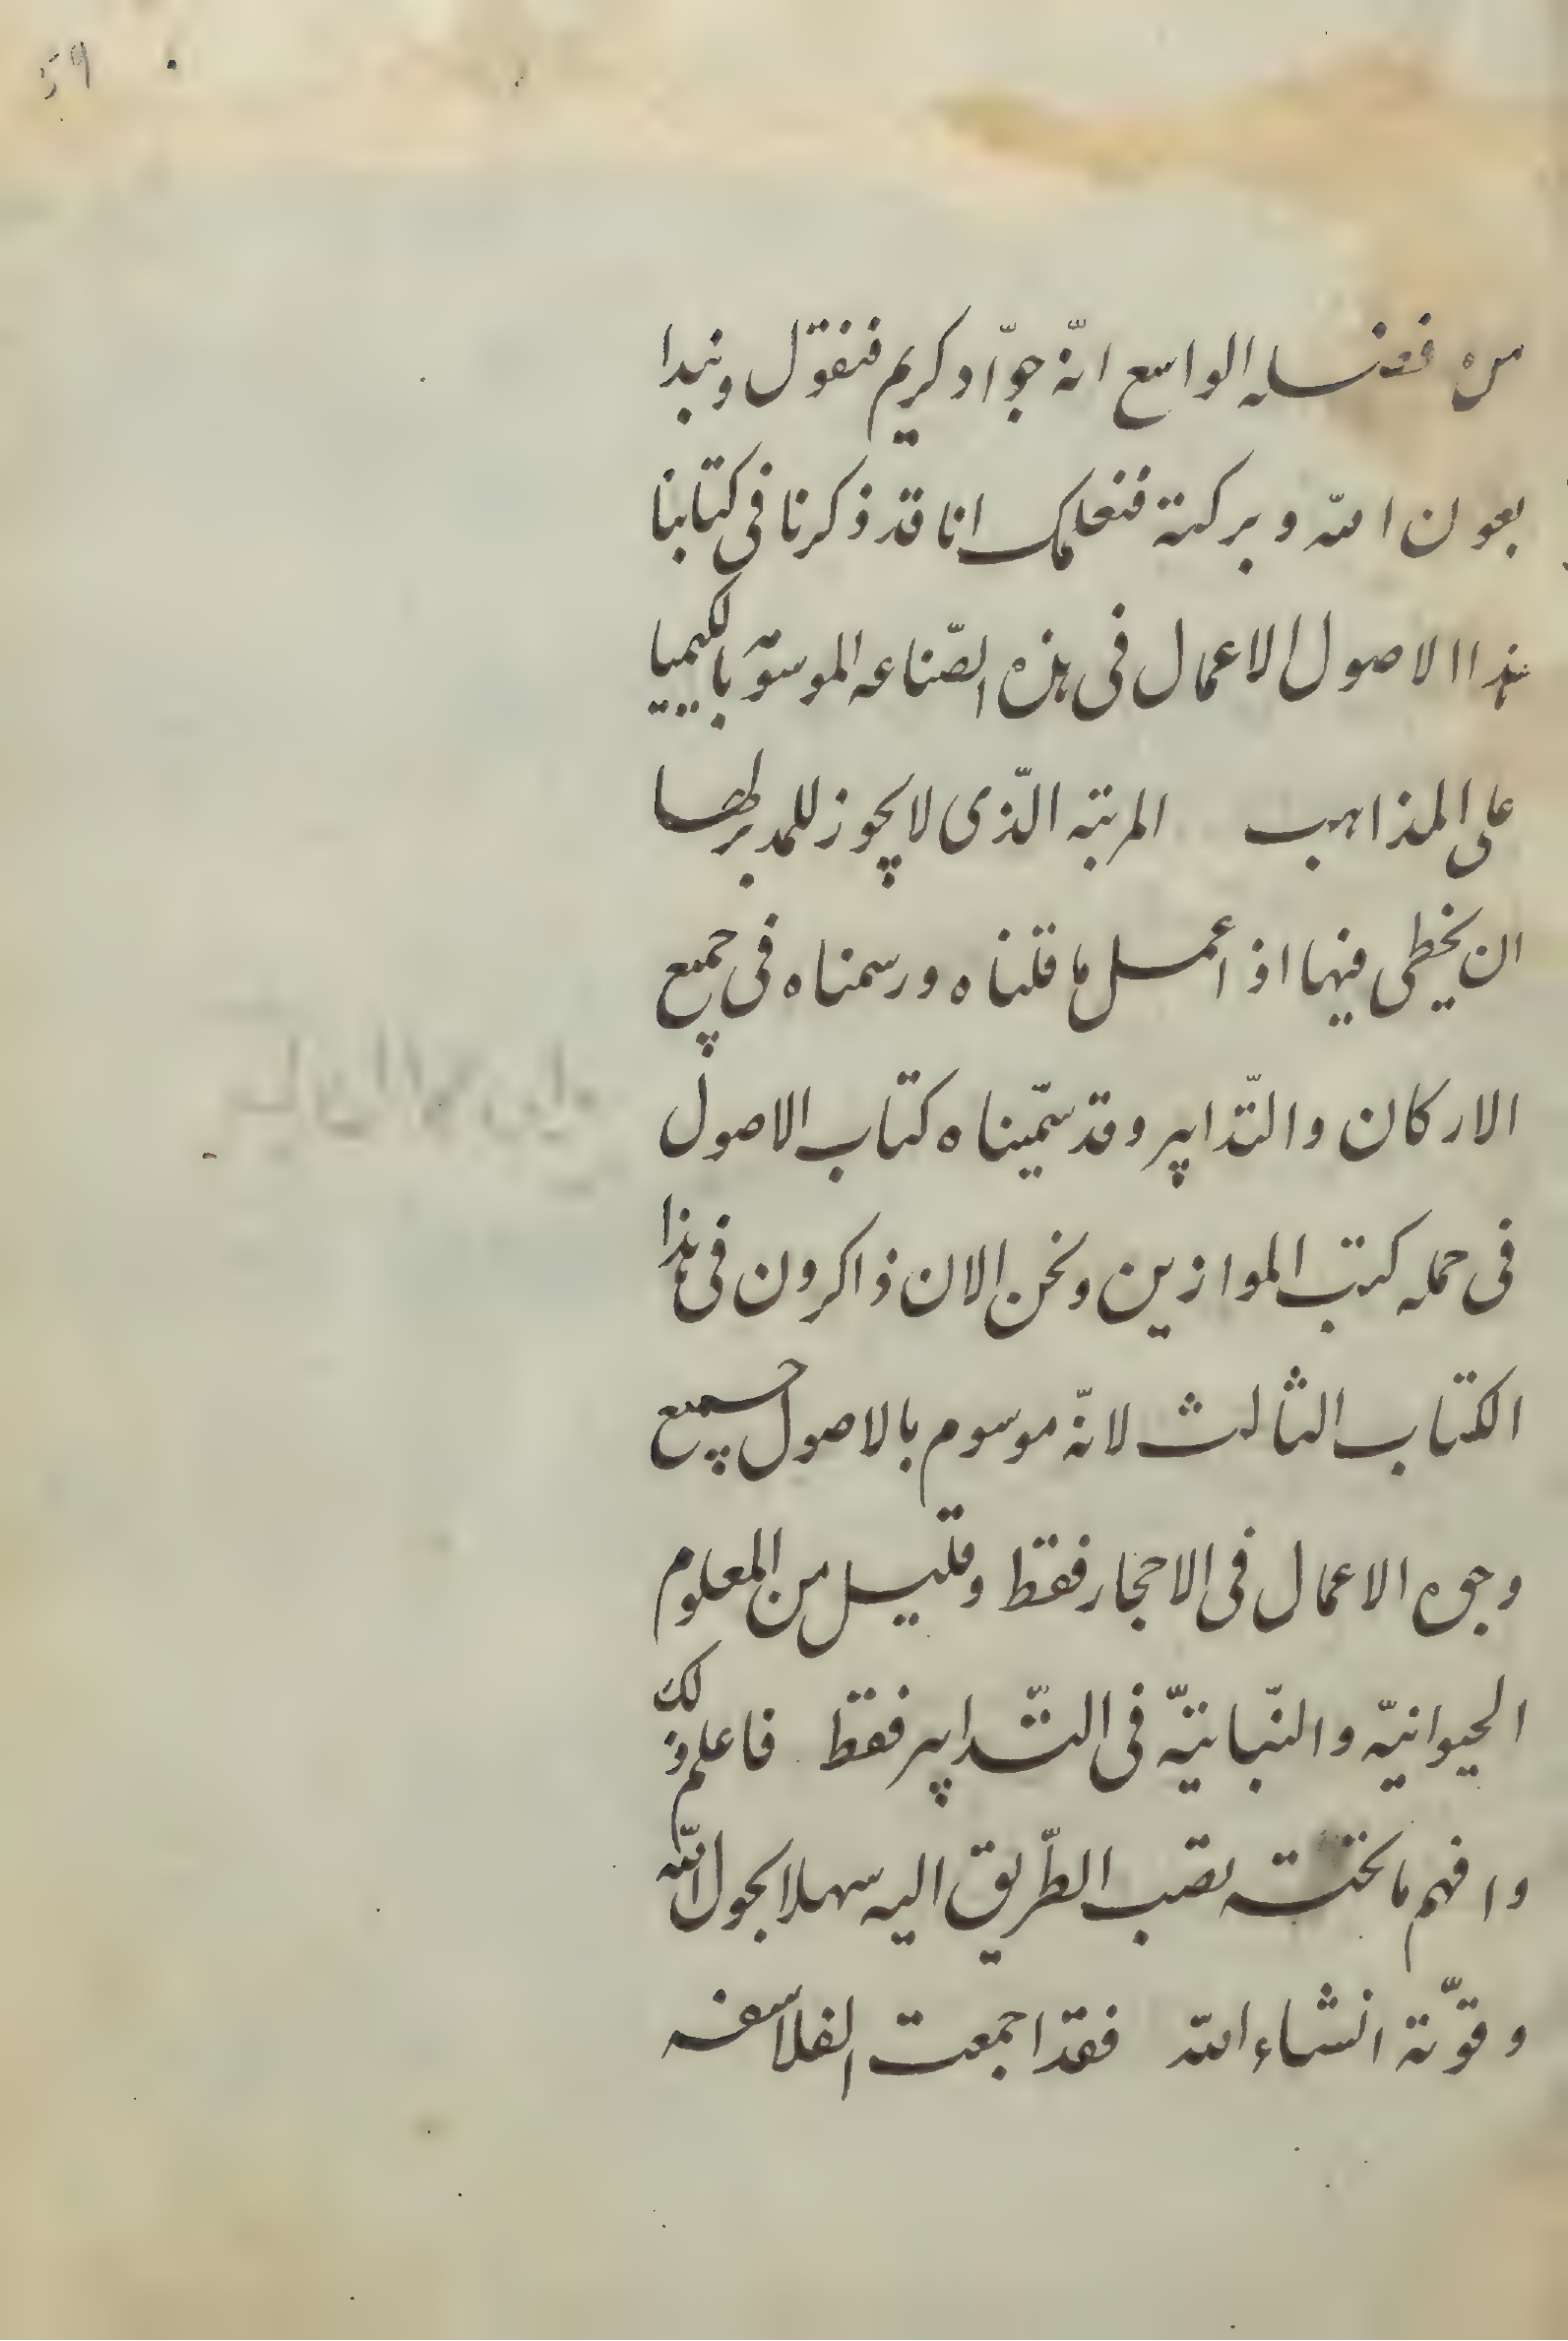 59
من فضله الواسع انّه جوّاد كريم فنقول ونبدا
بعون الله وبركته فنعلمك انا قد ذكرنا فى كتابنا
هذا الاصول الاعمال فى هذه الصّناعه الموسومة بالكيميا
على المذاهب المرتبه الّذى لا يجوز للمدبر لها
ان يخطى فيها اذ اعمل ما قلناه ورسمناه فى جميع
الاركان والتّدابير وقد سمّيناه كتاب الاصول
فى جمله كتب الموازين ونحن الان ذاكرون فى هذا
الكتاب الثالث لانّه موسوم بالاصول جميع
وجوه الاعمال فى الاحجار فقط وقليل من المعلوم
الحيوانيّه والنّباتيّه فى التّدابير فقط فاعلم ذلك
وافهم ما تحته تصب الطّريق اليه سهلا بحول الله
وقوّته انشاء الله فقد اجمعت الفلاسفه